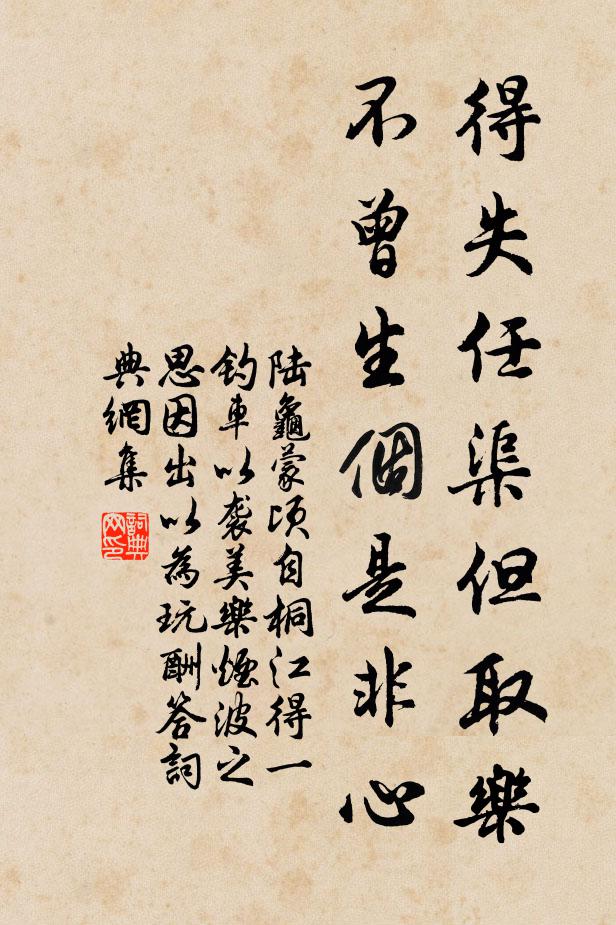 得失任渠但取樂
不曾生個是非心
陆龜蒙頃自桐江得一
釣車以袭美樂煙波之
思因出以為玩酬答詞
典網集
詞典
网印